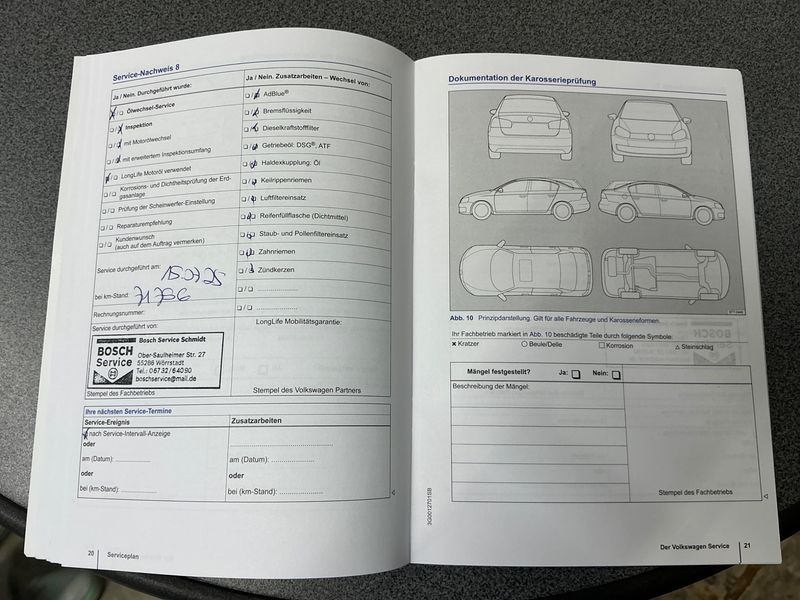 Service-Nachweis 8
Ja / Nein. Durchgeführt wurde:
Ölwechsel-Service
Inspektion
mit Motorölwechsel
mit erweitertem Inspektionsumfang
LongLife Motoröl verwendet
Korrosions- und Dichtheitsprüfung der Erd-
gasanlage
Prüfung der Scheinwerfer-Einstellung
Reparaturempfehlung
Kundenwunsch
(auch auf dem Auftrag vermerken)
Service durchgeführt am:
bei km-Stand: 71756
Rechnungsnummer:
Service durchgeführt von:
BOSCH
Service
Bosch Service Schmidt
Ober-Saulheimer Str. 27
55286 Wörrstadt
Tel.: 06732/64090
boschservice@mail.de
Stempel des Fachbetriebs
Ja / Nein. Zusatzarbeiten – Wechsel von:
AdBlue®
Bremsflüssigkeit
Dieselkraftstofffilter
Getriebeöl: DSG®, ATF
Haldexkupplung: Öl
Keilrippenriemen
Luftfiltereinsatz
Reifenfüllflasche (Dichtmittel)
Staub- und Pollenfiltereinsatz
Zahnriemen
Zündkerzen
LongLife Mobilitätsgarantie:
Stempel des Volkswagen Partners
Ihre nächsten Service-Termine
Service-Ereignis
nach Service-Intervall-Anzeige
oder
am (Datum): ....................
oder
bei (km-Stand): ....................
Zusatzarbeiten
am (Datum): ....................
oder
bei (km-Stand): ....................
20 Serviceplan
Dokumentation der Karosserieprüfung
Abb. 10 Prinzipdarstellung. Gilt für alle Fahrzeuge und Karosserieformen.
Ihr Fachbetrieb markiert in Abb. 10 beschädigte Teile durch folgende Symbole:
× Kratzer ○ Beule/Delle □ Korrosion △ Steinschlag
Mängel festgestellt? Ja: Nein:
Beschreibung der Mängel:
Stempel des Fachbetriebs
3G0012701SB
Der Volkswagen Service 21